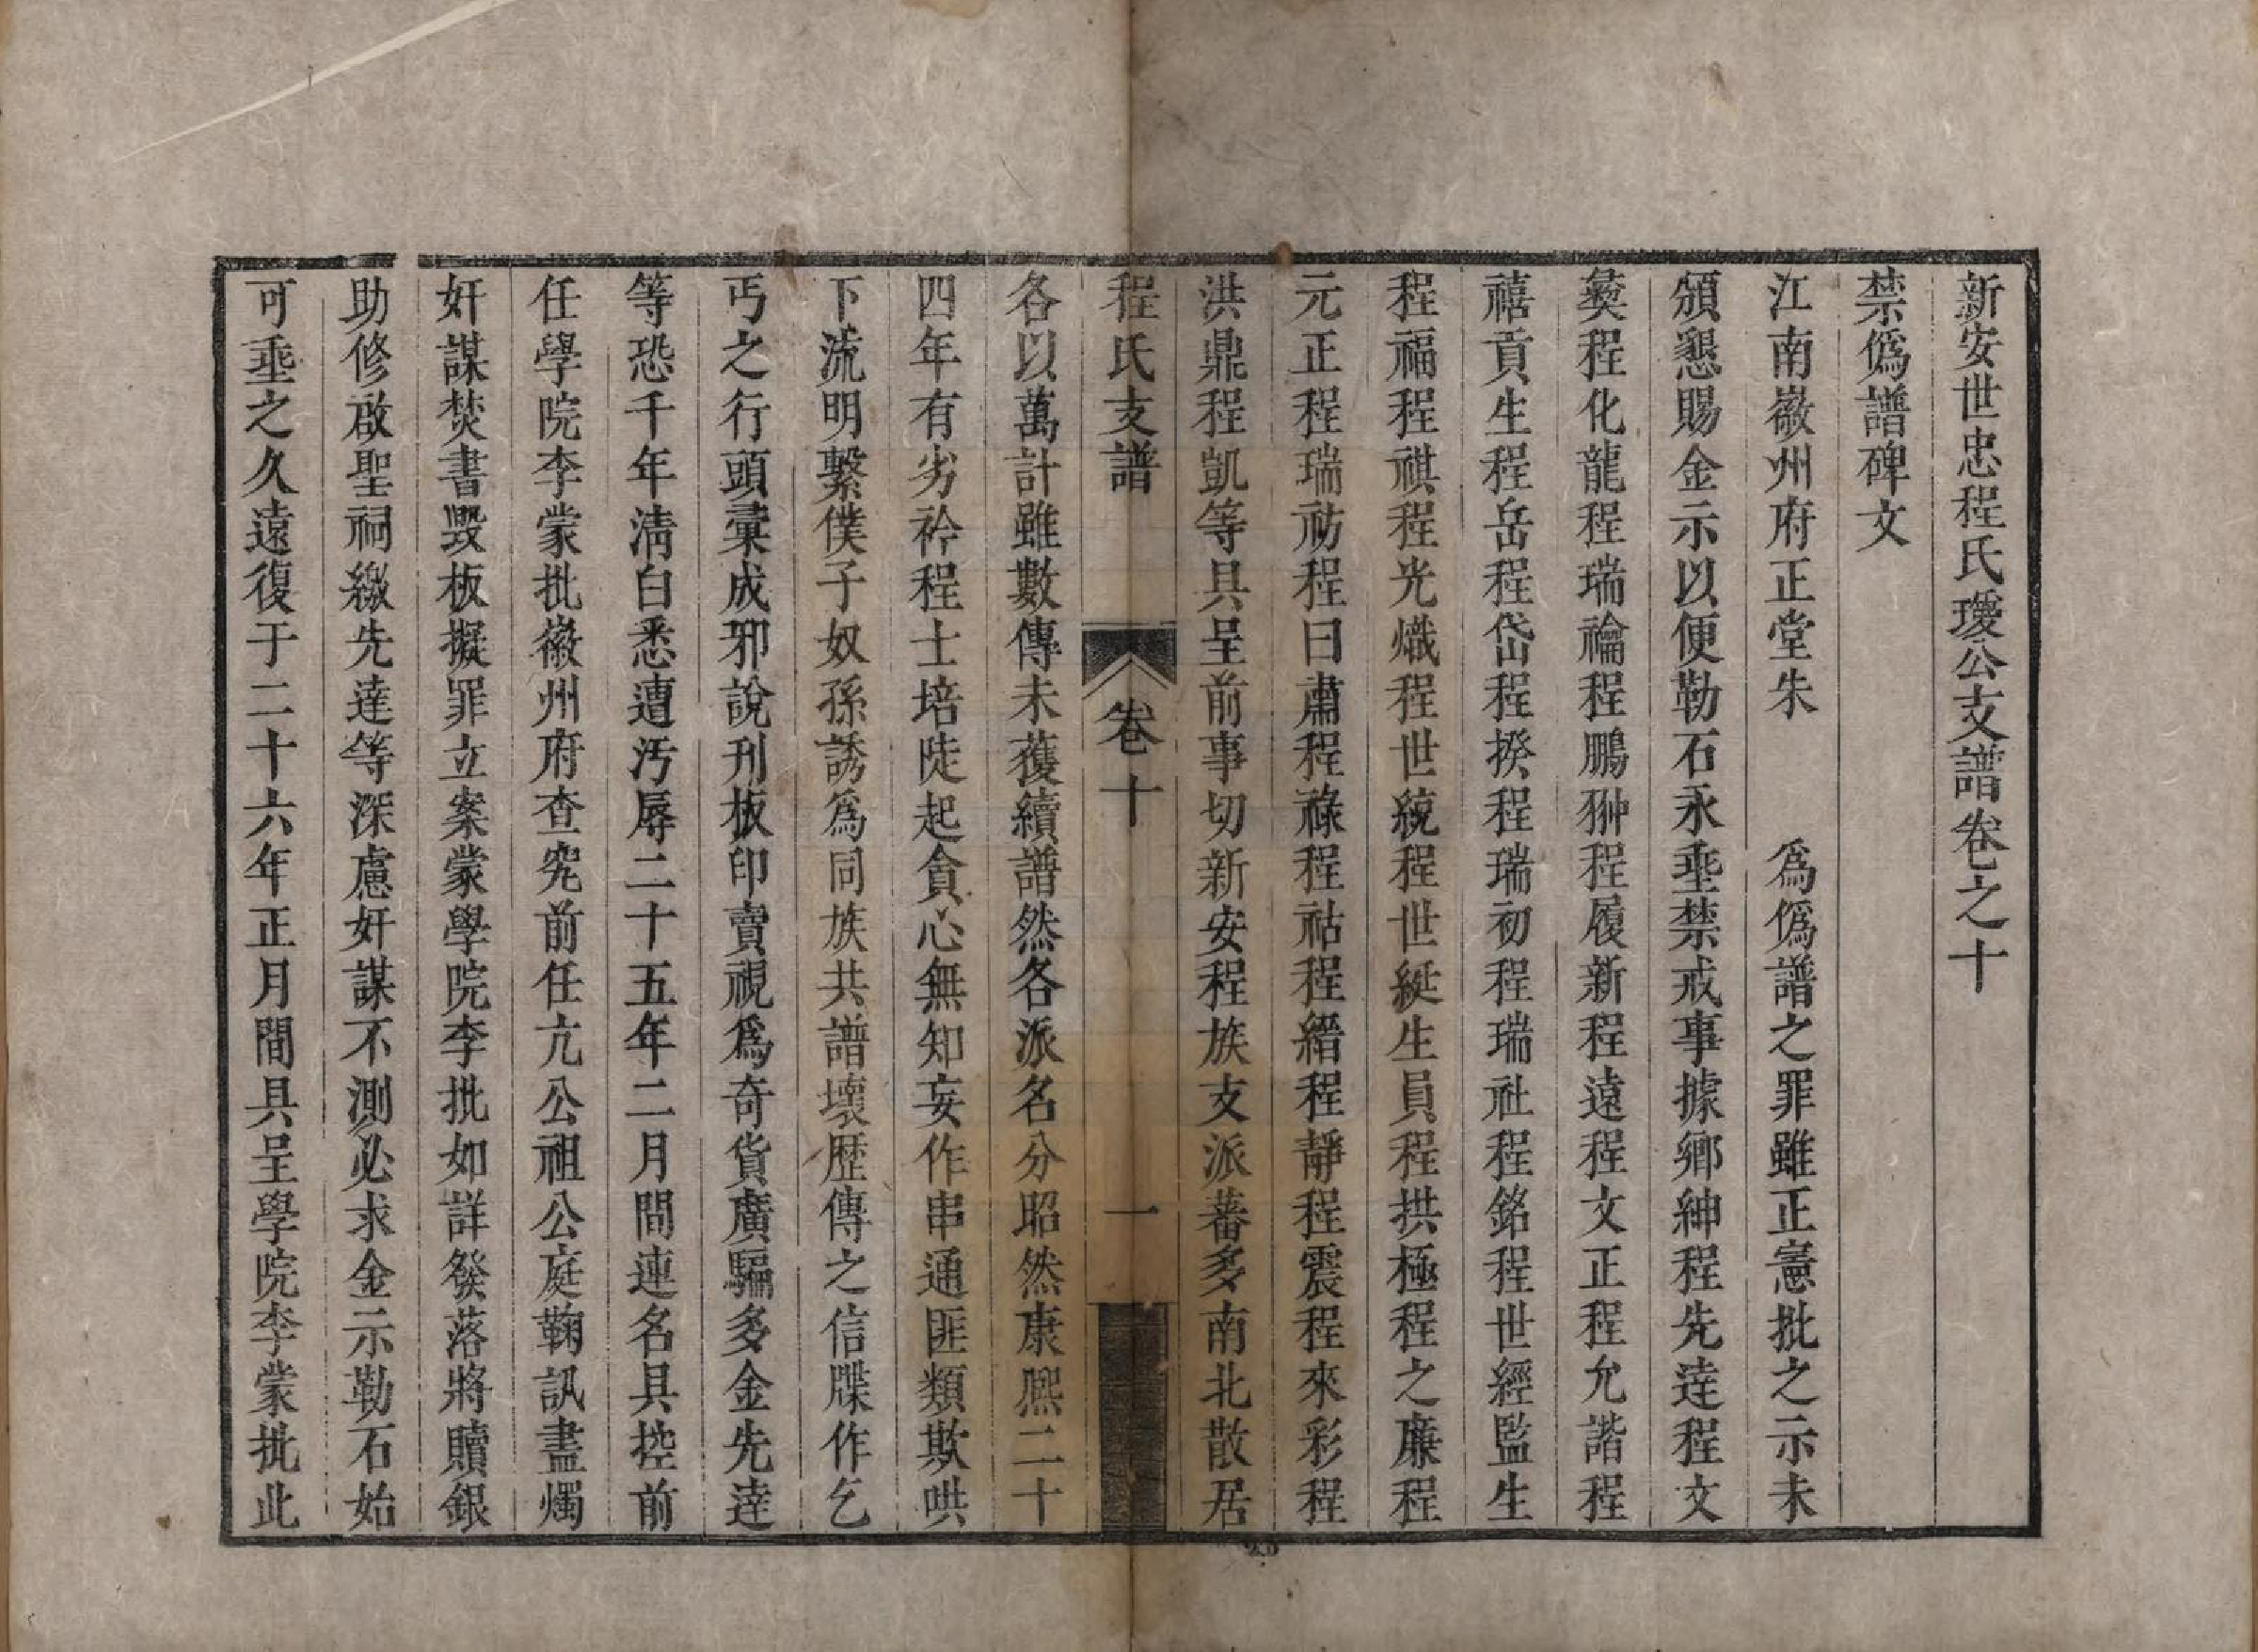 新安世忠程氏瓊公支譜卷之十
禁僞譜碑文
江南徽州府正堂朱　　爲僞譜之罪雖正憲批之示未
頒懇賜金示以便勒石永埀禁戒事據鄉紳程先達程文
彜程化龍程瑞禴程鵬翀程履新程遠程文正程允諧程
禧貢生程岳程岱程揆程瑞初程瑞社程銘程世經監生
程福程祺程光熾程世統程世綖生員程拱極程之廉程
元正程瑞祊程曰肅程祿程祜程縉程靜程震程來彩程
洪鼎程凱等具呈前事切新安程族支派蕃多南北散居
程氏支譜　卷十　一
各以萬計雖數傳未獲續譜然各派名分昭然康熈二十
四年有劣衿程士培陡起貪心無知妄作串通匪類欺哄
下流明繫僕子奴孫誘爲同族共譜壞歷傳之信牒作乞
丐之行頭彚成邪說刋板印賣視爲奇貨廣騙多金先達
等恐千年淸白悉遭汚辱二十五年二月間連名具控前
任學院李蒙批徽州府查究前任亢公祖公庭鞠訊盡燭
奸謀焚書毀板擬罪立案蒙學院李批如詳發落將贖銀
助修啟聖祠繳先達等深慮奸謀不測必求金示勒石始
可埀之久遠復于二十六年正月間具呈學院李蒙批此